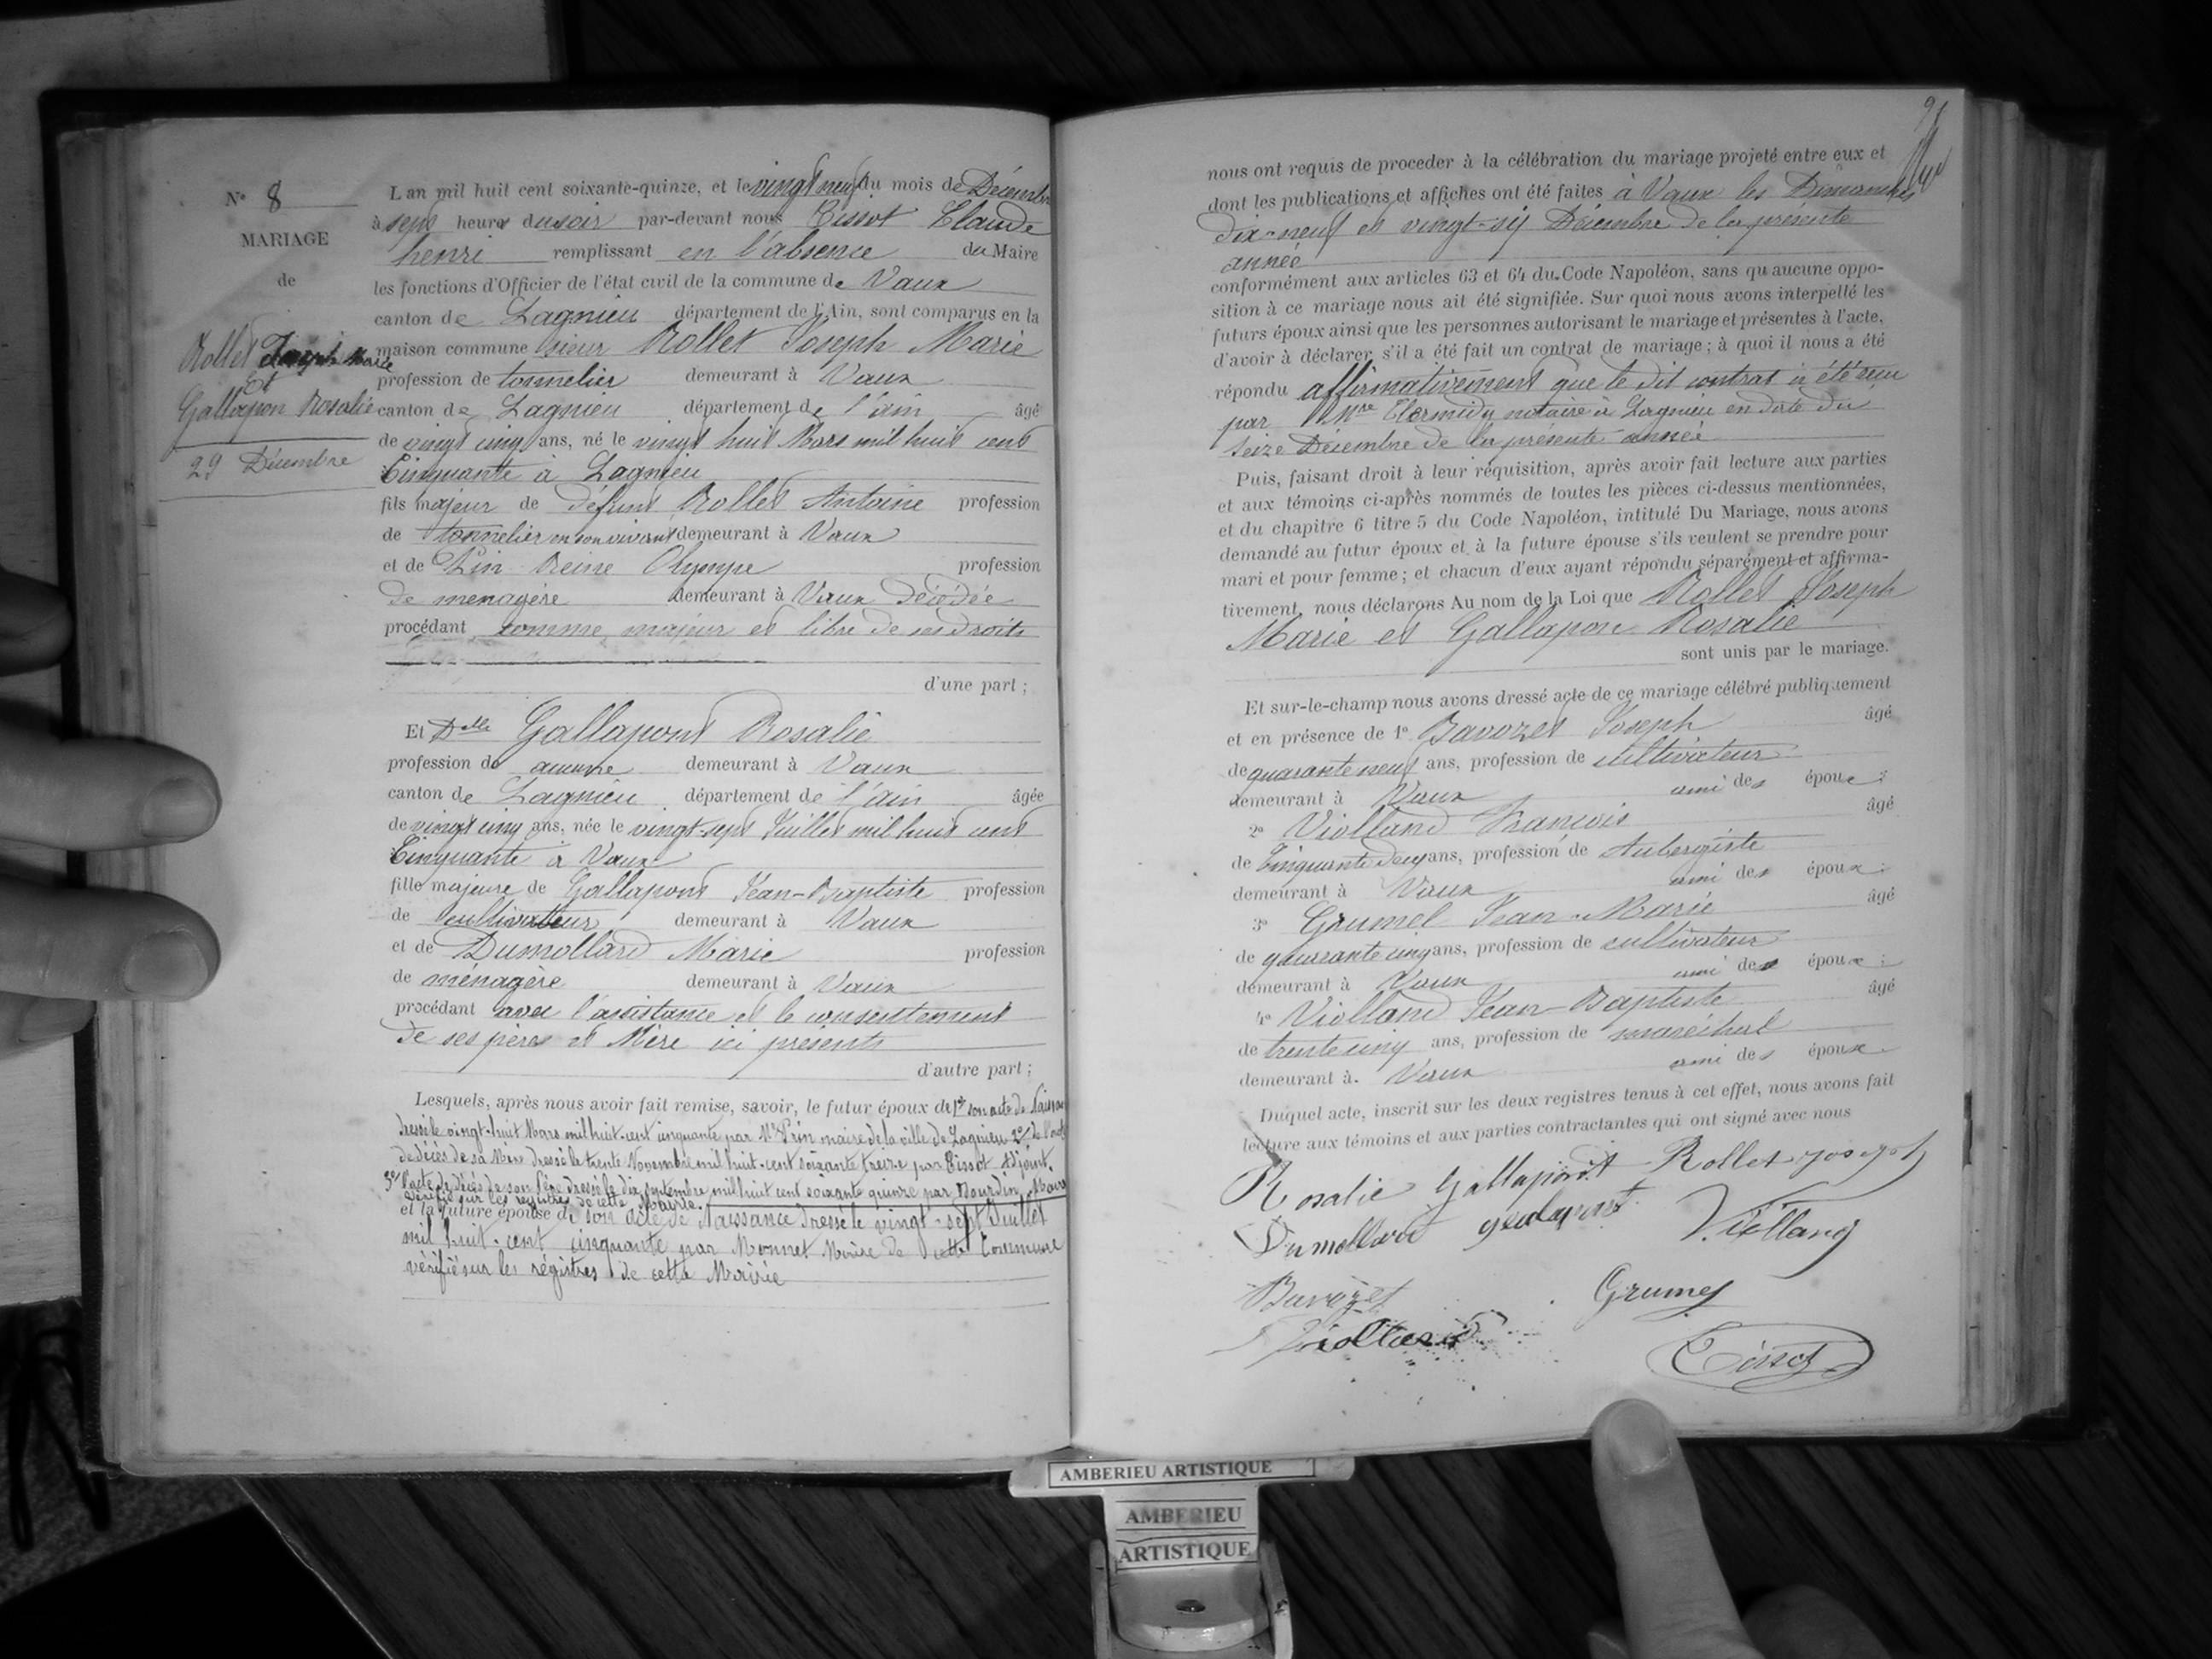 N° 8
MARIAGE
de
Rollet Joseph Marie
Et
Gallapon Rosalie
29 Décembre
L'an mil huit cent soixante-quinze, et le vingt neuf du mois de Décembre
à sept heures du soir par-devant nous Tissot Claude
henri remplissant en l'absence du Maire
les fonctions d'Officier de l'état civil de la commune de Vaux
canton de Lagnieu département de l'Ain, sont comparus en la
maison commune sieur Rollet Joseph Marie
profession de tonnelier demeurant à Vaux
canton de Lagnieu département de l'ain âgé
de vingt cinq ans, né le vingt huit Mars mil huit cent
Cinquante à Lagnieu
fils majeur de défunt Rollet Antoine profession
de tonnelier en son vivant demeurant à Vaux
et de Pin Reine Olympe profession
de menagère demeurant à Vaux Décédée
procédant comme majeur et libre de ses droits
d'une part ;
Et Dlle Gallapont Rosalie
profession de aucune demeurant à Vaux
canton de Lagnieu département de l'ain âgée
de vingt cinq ans, née le vingt-sept Juillet mil huit cent
Cinquante à Vaux
fille majeure de Gallapont Jean-Baptiste profession
de cultivateur demeurant à Vaux
et de Dumollard Marie profession
de ménagère demeurant à Vaux
procédant avec l'assistance et le consentement
de ses pères et Mère ici présents
d'autre part ;
Lesquels, après nous avoir fait remise, savoir, le futur époux de 1° son acte de Naissance
dressé le vingt-huit Mars mil huit-cent cinquante par Mr maire de la ville de Lagnieu 2° de l'acte
de décès de sa Mère dressé le trente Novembre mil huit-cent soixante treize par Tissot Adjoint.
3° l'acte de décès de son Père dressé le dix septembre mil huit cent soixante quinze par Bourdin Maire
vérifié sur les registres de cette Mairie.
et la future épouse de son acte de Naissance dressé le vingt-sept Juillet
mil huit-cent cinquante par Monnet Maire de cette Commune
vérifié sur les régistres de cette Mairie
nous ont requis de proceder à la célébration du mariage projeté entre eux et
dont les publications et affiches ont été faites à Vaux les Dimanches
dix-neuf et vingt-six Décembre de la présente
année
conformément aux articles 63 et 64 du Code Napoléon, sans qu'aucune oppo-
sition à ce mariage nous ait été signifiée. Sur quoi nous avons interpellé les
futurs époux ainsi que les personnes autorisant le mariage et présentes à l'acte,
d'avoir à déclarer s'il a été fait un contrat de mariage ; à quoi il nous a été
répondu affirmativement que le dit contrat a été reçu
par Mre notaire à Lagnieu en date du
Seize Décembre de la présente année
Puis, faisant droit à leur réquisition, après avoir fait lecture aux parties
et aux témoins ci-après nommés de toutes les pièces ci-dessus mentionnées,
et du chapitre 6 titre 5 du Code Napoléon, intitulé Du Mariage, nous avons
demandé au futur époux et à la future épouse s'ils veulent se prendre pour
mari et pour femme ; et chacun d'eux ayant répondu séparément et affirma-
tivement, nous déclarons Au nom de la Loi que Rollet Joseph
Marie et Gallapon Rosalie
sont unis par le mariage.
Et sur-le-champ nous avons dressé acte de ce mariage célébré publiquement
et en présence de 1° Bavozet Joseph âgé
de quarante neuf ans, profession de cultivateur
demeurant à Vaux ami des époux ;
2° Violland Francois âgé
de Cinquante deux ans, profession de Aubergiste
demeurant à Vaux ami des époux ;
3° Grumel Jean-Marie âgé
de quarante cinq ans, profession de cultivateur
demeurant à Vaux ami des époux ;
4° Violland Jean-Baptiste âgé
de trente cinq ans, profession de maréchal
demeurant à Vaux ami des époux
Duquel acte, inscrit sur les deux registres tenus à cet effet, nous avons fait
lecture aux témoins et aux parties contractantes qui ont signé avec nous
Rosalie Gallapont Rollet joseph
Dumollard Violland
Bavozet Grumel
Violland
Tissot
AMBERIEU ARTISTIQUE
AMBERIEU
ARTISTIQUE